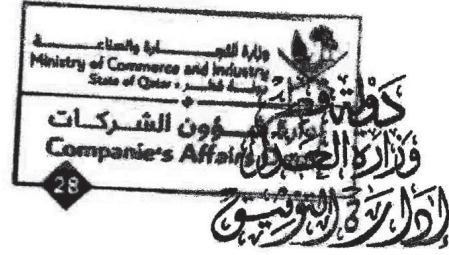 وزارة التجـــــارة والصناعـــة
Ministry of Commerce and Industry
State of Qatar • دولـــة قطـــر
إدارة شـــؤون الشــركــات
Companie's Affairs
28
دولة قطر
وزارة العدل
إدارة التوثيق